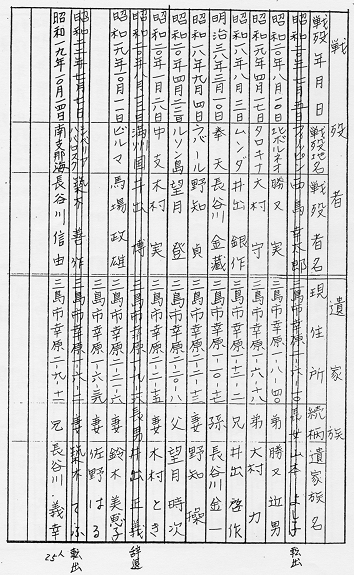 戦没者 遺家族
戦没年月日 戦没地名 戦没者名 現住所 続柄 遺家族名
昭和二〇年七月五日 フィリッピン 西島幸太郎 三島市幸原一-六-一〇 長女 山本よし子 転出
昭和二〇年八月一〇日 北ボルネオ 勝又実 三島市幸原一-八-四〇 弟 勝又近男
昭和一九年四月一七日 タロキナ 大村守 三島市幸原一-六-十八 弟 大村力
昭和一八年八月一〇日 ムンダ 井出銀作 三島市幸原一-十二-二 兄 井出啓作
明治三八年三月一〇日 奉天 長谷川金蔵 三島市幸原一-一〇-十三 孫 長谷川金一
昭和一八年九月四日 ラバール 野知貞 三島市幸原 妻 野知操
昭和二〇年四月二三日 ルソン島 望月登 三島市幸原 父 望月時次
昭和二〇年一月六日 中支 木村実 三島市幸原 妻 木村とき
昭和二〇年八月十三日 満州国 井出博 三島市幸原 長男 井出正義 辞退
ビルマ 馬場政雄 三島市幸原 妻 鈴木美恵子
三島市幸原 妻 佐野はる
昭和二一年七月七日 シベリア ハバロスク 築木善作 三島市幸原 妻 築木てふ 転出
昭和一九年一〇月一四日 南支那海 長谷川信由 三島市幸原二-九-十三 兄 長谷川義幸
25人